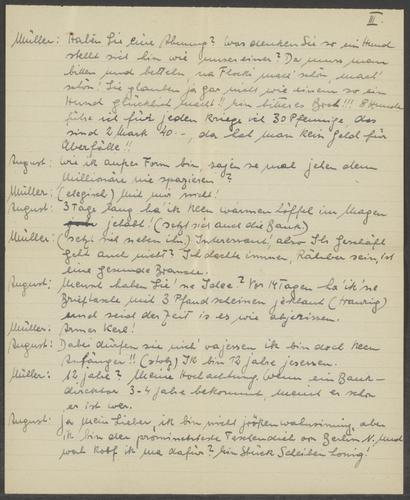 III.
Müller: Haben Sie eine Ahnung? Was denken Sie so ein Hund
stellt sich hin wie unser einer? Da muss man
bitten und betteln na Flocki mach' schön, mach'
schön! Sie glauben ja gar nicht wie einem so ein
Hund macht!! Ein bitteres Brot!!! 8 Hunde
führe ich für jeden kriege ich 30 Pfennige das
sind 2 Mark 40.-, da hat man kein Geld für
Überfälle!!
August: wie ik ausser Form bin, sagen se mal jehen denn
Millionäre nie spazieren?
Müller: (elegisch) Mit mir nicht!
August: 3 Tage lang ha' ik keen warmen Löffel im Magen
gehabt! (setzt sich auf die Bank)
Müller: (setzt sich neben ihn) Interessant, also Ihr Geschäft
geht auch nicht? Ich dachte immer, Räuber sein, ist
eine gesunde Branche.
August: Mensch haben Sie 'ne Idee? Vor 14 Tagen ha' ik 'ne
Brieftasche mit 3 Pfandscheinen jeklaut (traurig)
und seid der Zeit is es wie abjerissen.
Müller: Armer Kerl!
August: Dabei dürfen sie nich' vajessen ik bin doch keen
Anfänger!! (stolz) Ik bin 12 Jahre jesessen.
Müller: 12 Jahre? Meine Hochachtung. Wenn ein Bank-
direktor 3-4 Jahre bekommt, meint er schon
er ist wer.
August: Ja mein Lieber, ik bin nicht jrössenwahnsinnig, aber
ik bin der prominenteste Taschendieb von Berlin N. und
wat koof ik ma dafür? Ein Stück Scheibenhonig!